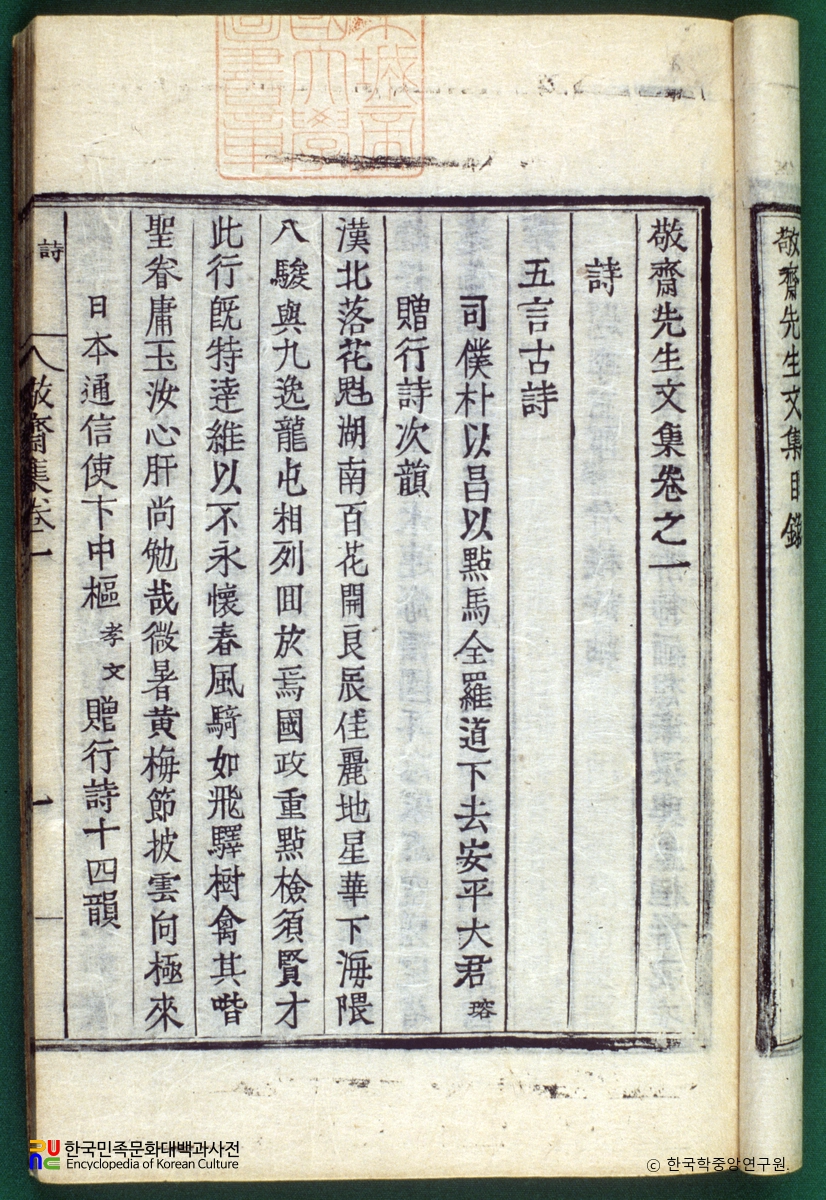 敬齋先生文集目錄
敬齋先生文集卷之一
詩
五言古詩
司僕朴以昌以點馬全羅道下去安平大君瑢
贈行詩次韻
漢北落花魁湖南百花開良辰佳麗地星華下海隈
八駿與九逸龍屯相列回放焉國政重點檢須賢才
此行旣特達維以不永懷春風騎如飛驛樹禽其喈
聖眷庸玉汝心肝尚勉哉微暑黃梅節披雲向極來
日本通信使卞中樞孝文贈行詩十四韻
詩
敬齋集卷一
一
한국민족문화대백과사전
Encyclopedia of Korean Culture
© 한국학중앙연구원